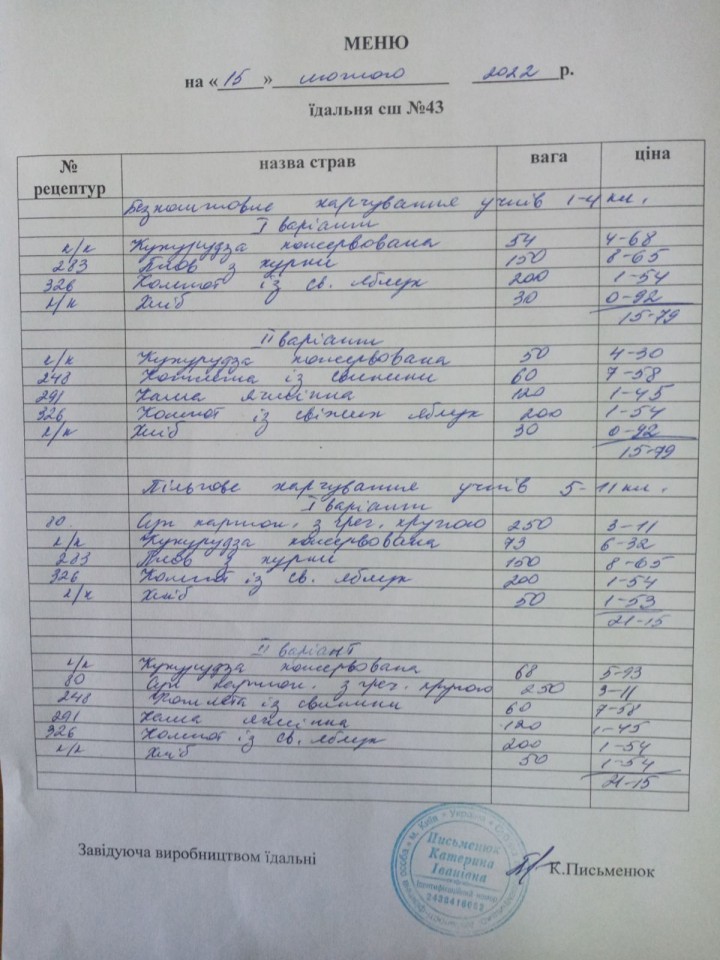 МЕНЮ
на «15» лютого 2022 р.
їдальня сш №43
№ рецептур назва страв вага ціна
Безкоштовне харчування учнів 1-4 кл.
I варіант
к/к Кукурудза консервована 54 4-68
283 Плов з курки 150 8-65
326 Компот із св. яблук 200 1-54
к/к Хліб 30 0-92
15-79
II варіант
к/к Кукурудза консервована 50 4-30
248 Котлета із свинини 60 7-58
291 Каша ячмінна 120 1-45
326 Компот із свіжих яблук 200 1-54
к/к Хліб 30 0-92
15-79
Пільгове харчування учнів 5-11 кл.
I варіант
80. Суп картоп. з греч. крупою 250 3-11
к/к Кукурудза консервована 73 6-32
283 Плов з курки 150 8-65
326 Компот із св. яблук 200 1-54
к/к Хліб 50 1-53
21-15
II варіант
к/к Кукурудза консервована 68 5-93
80 Суп картоп. з греч. крупою 250 3-11
248 Котлета із свинини 60 7-58
291 Каша ячмінна 120 1-45
326 Компот із св. яблук 200 1-54
к/к Хліб 50 1-54
21-15
Завідуюча виробництвом їдальні К.Письменюк
м. Київ * Україна *
Письменюк
Катерина
Іванівна
Ідентифікаційний номер